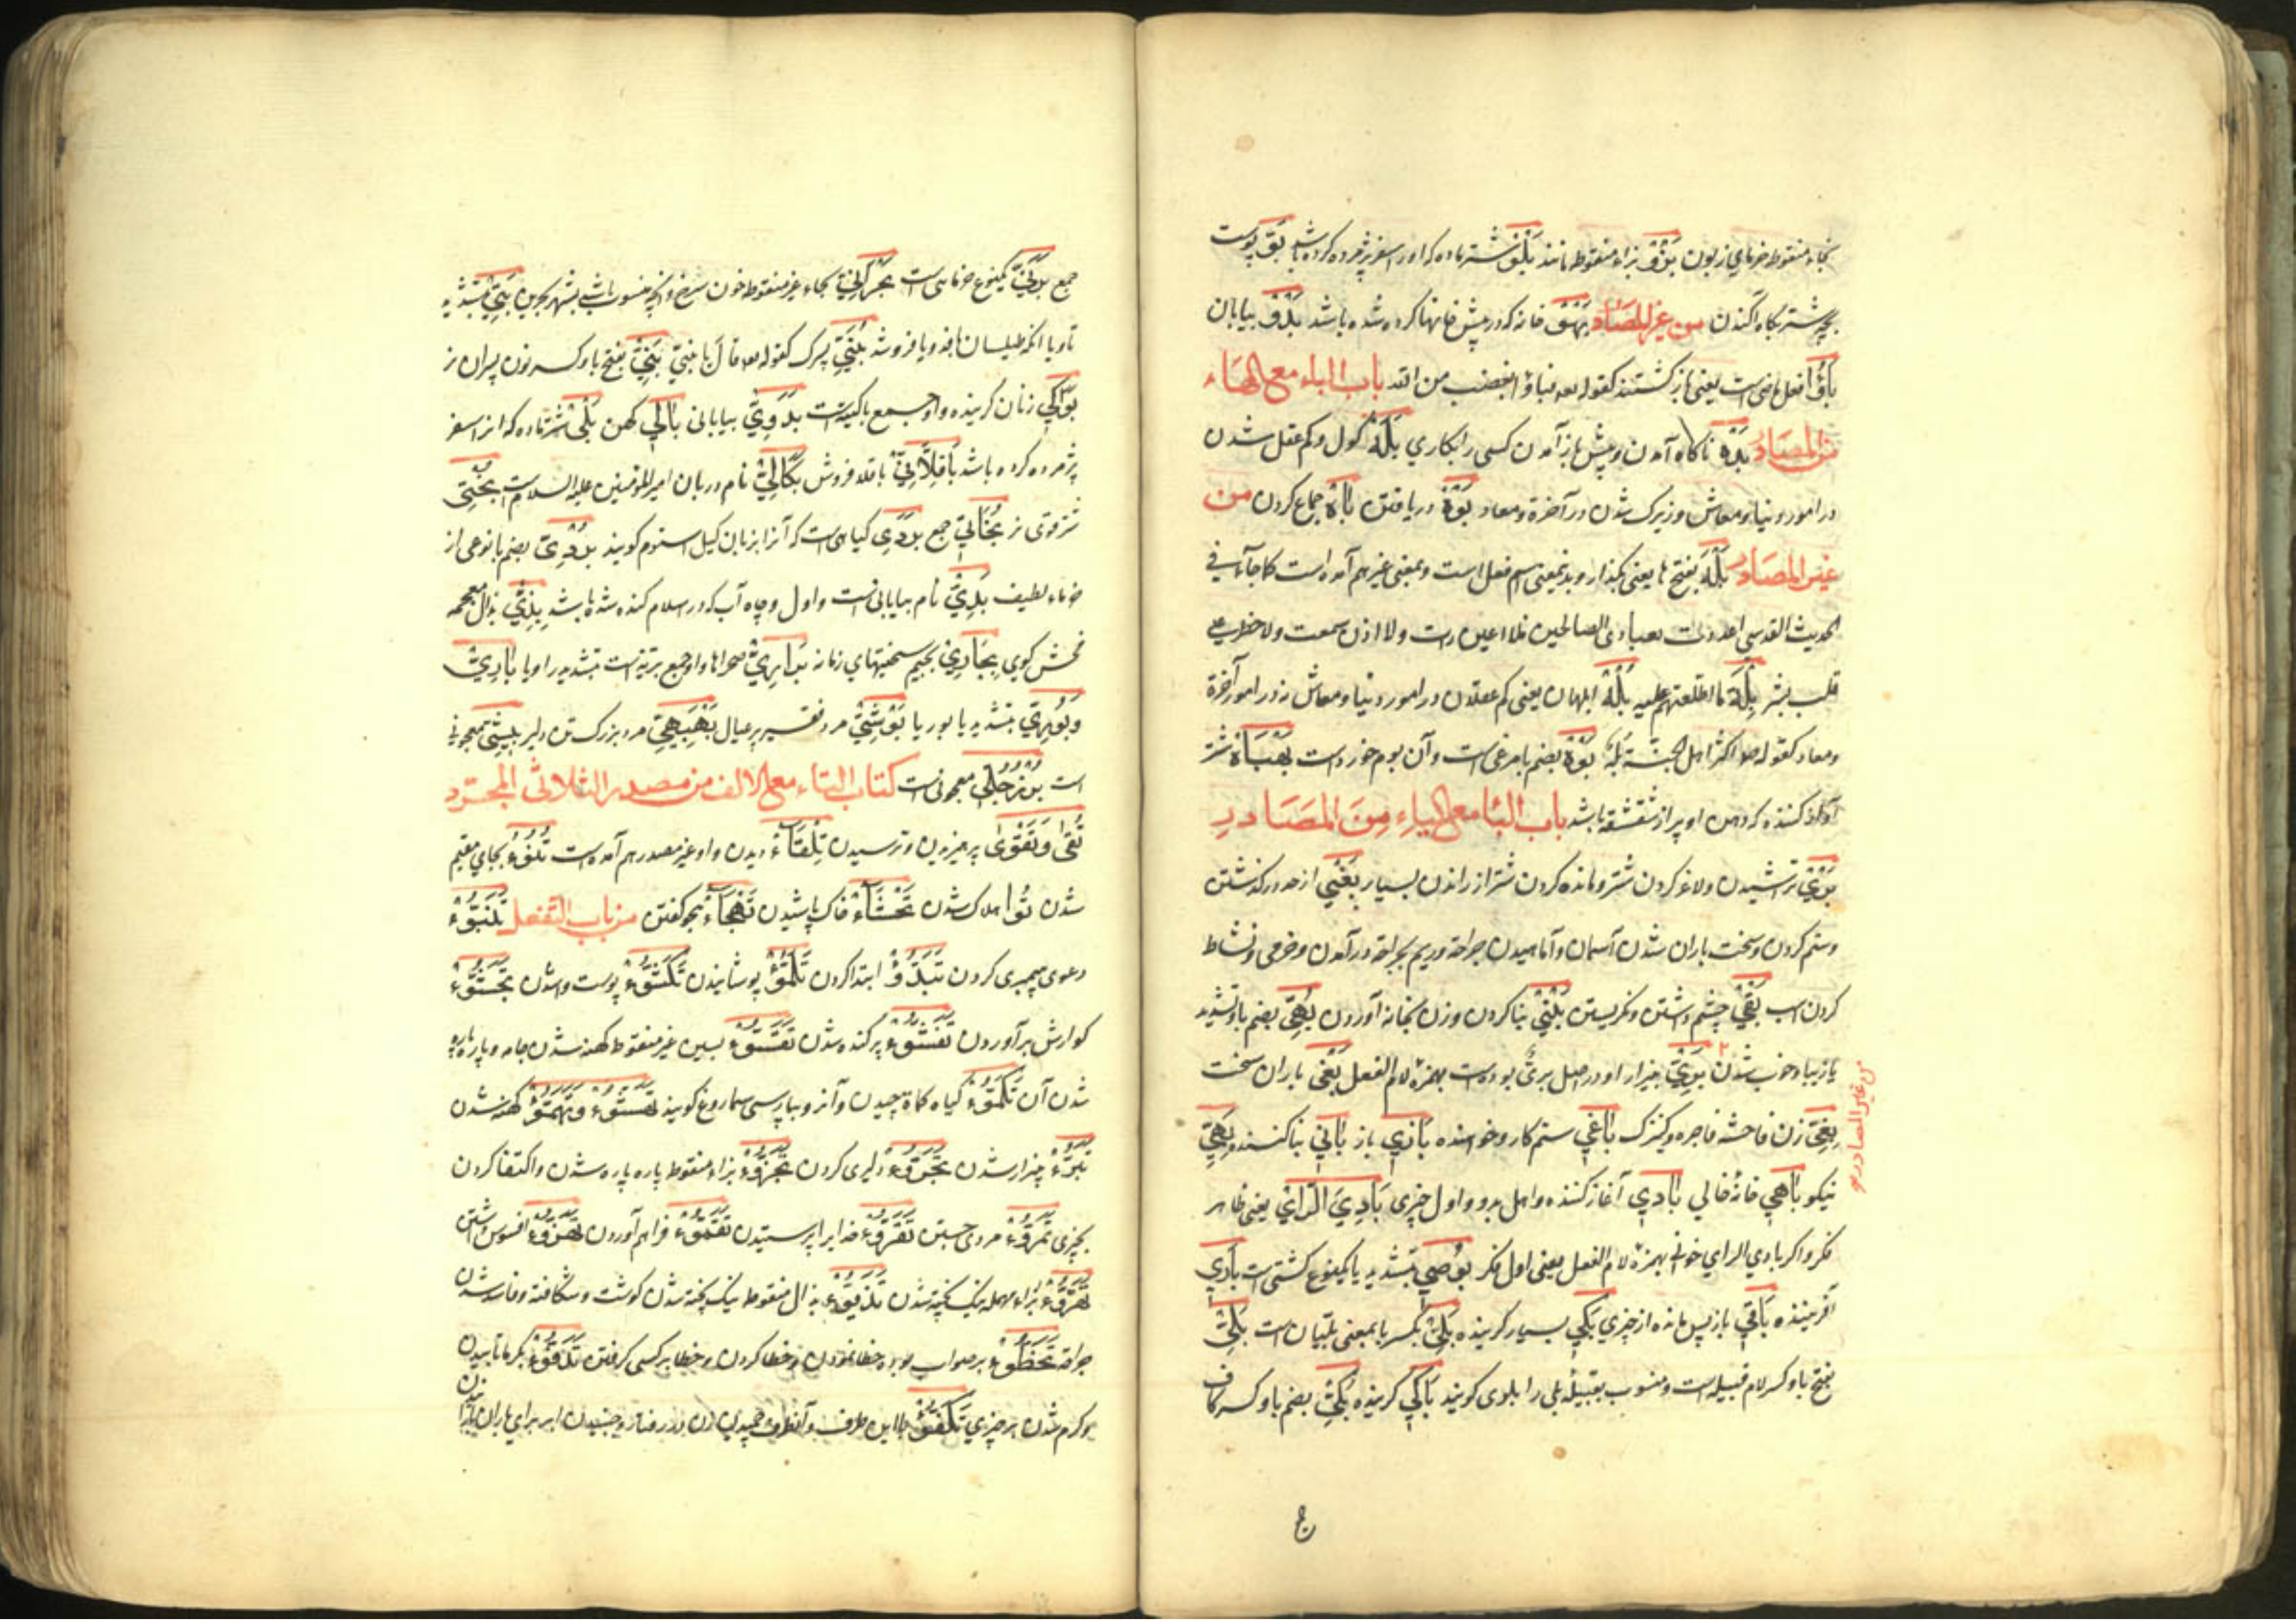 بخاء منقوطه خرمای زبون بزو بزاء منقوطه مانند بلو شتر ماده که اورا سفر پژمرده کرده باشد بو پوست
بچه شتر بکاه آکندن من غیر المصادر بهو خانه که در پیش خانها کرده شده باشد بدو بیابان
باؤا فعل ماضی است یعنی بازگشتند کقوله تعه فباؤا بغضب من الله باب الباء مع الهاء
من المصادر بده ناکاه آمدن و پیش باز آمدن کسی را بکاری بله کول و کم عقل شدن
در امور دنیا و معاش و زیرک شدن در آخرة و معاد بوه دریافتن باه جماع کردن من
غیر المصادر بله بفتح ها یعنی بگذار و بدینمعنی اسم فعل است و بمعنی غیر هم آمده است کما جاء فی
الحدیث القدسی اعددت لعبادی الصالحین مالا عین رأت ولا اذن سمعت ولا خطر علی
قلب بشر بله ما اطلعتهم علیه بله ابلهان یعنی کم عقلان در امور دنیا و معاش نه در امور آخرة
و معاد کقوله صلعم اکثر اهل الجنة بله بوه بضم با مرغی است و آن بوم خورد است بهباه شتر
آواز کننده که دهن او پر از شقشقه باشد باب البا مع الیاء من المصادر
بری تراشیدن و لاغر کردن شتر و مانده کردن شتر از راندن بسیار بغی از حد در گذشتن
و ستم کردن و سخت باران شدن آسمان و آماهیدن جراحة و ریم بجراحة در آمدن و خرمی و نشاط
کردن اسب بقی چشم داشتن و نگریستن بنی بنا کردن و زن بخانه آوردن بهی بضم با و تشدید
یا زیبا و خوب شدن بری بیزار او در اصل بریء بوده است بهمزه لام الفعل بغی باران سخت
من غیر المصادر
بغی زن فاحشه فاجره و کنیزک باغی ستم کار و خواهنده بازی باز بانی بنا کننده بهی
نیکو باهی خانه خالی بادی آغاز کننده و اهل بدو و اول چیزی بادی الرای یعنی ظاهر
فکر و اگر بادی الرای خوانی بهمزه لام الفعل یعنی اول فکر بوصی بتشدید یا یکنوع کشتی است باری
آفریننده باقی باز پس مانده از چیزی بکی بسیار گرینده بلی بکسر با بمعنی بلیان است بلی
بفتح با و کسر لام قبیله است و منسوب بقبیله بلی را بلوی گویند باکی گرینده بکی بضم با و کسر کاف
جمع برنی یکنوع خرمایی است بحرانی بحاء غیر منقوطه خون سرخ و آنچه منسوب باشد بشهر بحرین بتی بتشدید
تا و یا آنکه طیلسان بافد و یا فروشد بنی پسرک کقوله تعه قال یا بنی بنی بفتح با و کسر نون پسران من
بواکی زنان گرینده و او جمع باکیة است بدوی بیابانی بالی کهن بلی شتر ماده که از سفر
پژمرده کرده باشد باقلانی باقله فروش بکالی نام دربان امیر المؤمنین علیه السلام است بختی
شتر قوی نر بخاتی جمع بردی گیاهی است که آنرا بزبان کیل استوم گویند بردی بضم با نوعی از
خرماء لطیف بدی نام بیابانی است و اول و چاه آب که در اسلام کنده شده باشد بذی بذال معجمه
فحش گوی بجاری بجیم سختیهای زمانه براری صحراها و او جمع بریه است بتشدید را و یا باری
و بوری بتشدید یا بوریا بوشی مرد فقیر پر عیال بهبهی مرد بزرگ تن دلیر بلیشی معجونی
است بزرجلی معجونی است کتاب التاء مع الالف من مصدر الثلاثی المجرد
تقی و تقوی پرهیزیدن و ترسیدن تلقاء دیدن و او غیر مصدر هم آمده است تنوء بجای مقیم
شدن توا هلاک شدن تحثاء خاک پاشیدن تهجاء هجو گفتن من باب التفعل تنبوء
دعوی پیمبری کردن تبدؤ ابتدا کردن تلمؤ پوشانیدن تکشؤ پوست واشدن تجشؤ
گوارش بر آوردن تفشؤ پرکنده شدن تفسؤ بسین غیر منقوطه کهنه شدن جامه و پاره پاره
شدن آن تکمؤ گیاه کماة چیدن و آنرا بپارسی سماروغ گویند تهتؤ و تهمؤ کهنه شدن
تبرؤ بیزار شدن تجرؤ دلیری کردن تجزؤ بزاء منقوطه پاره پاره شدن و اکتفا کردن
بچیزی تمرؤ مردی جستن تقرؤ خدایرا پرستیدن تقمؤ فراهم آوردن تهزؤ افسوس داشتن
تهرؤ براء مهمله نیک پخته شدن تذیؤ بذال منقوطه نیک پخته شدن گوشت و شکافته و فاسد شدن
جراحة تخطؤ بر صواب بوده و خطا نمودن و خطا کردن و خطا بر کسی گرفتن تدفؤ بگرما تابیدن
و گرم شدن بر چیزی تکفؤ باین طرف و آنطرف چمیدن زن در رفتار و جنبیدن ابر برای باران